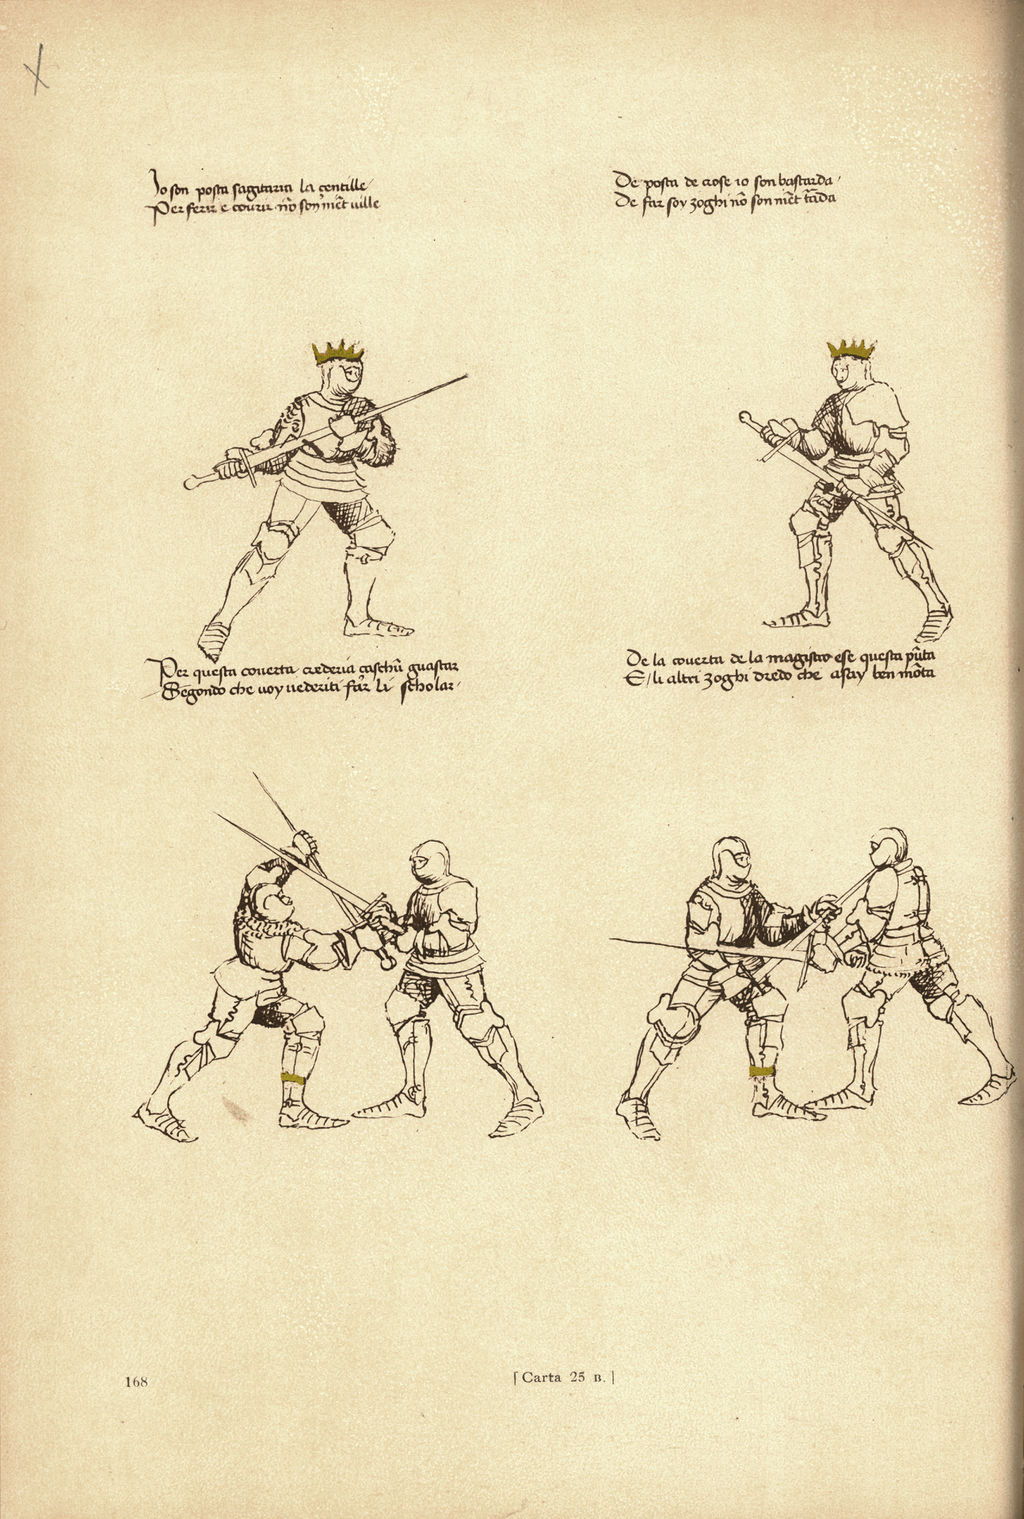 Io son posta sagitaria la çentille
Per ferir e courir nõ son niẽt uille
De posta de crose io son bastarda
De far soy zoghi nõ son niẽt tãda
Per questa couerta crederia caschũ guastar
Segondo che uoy uederiti far li scholar
De la couerta de la magistro ese questa pũta
E / li altri zoghi dredo che asay ben mõta
168
[Carta 25 B.]